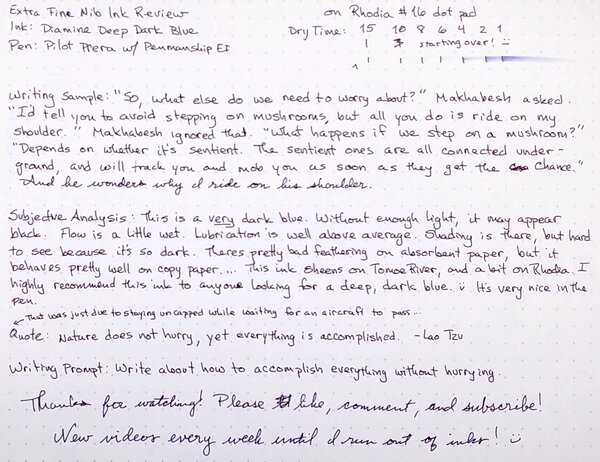 Extra Fine Nib Ink Review on Rhodia #16 dot pad
Ink: Diamine Deep Dark Blue Dry Time: 15 10 8 6 4 2 1
Pen: Pilot Prera w/ Penmanship EF starting over! :)
Writing Sample: "So, what else do we need to worry about?" Makhabesh asked.
"I'd tell you to avoid stepping on mushrooms, but all you do is ride on my
shoulder." Makhabesh ignored that. "What happens if we step on a mushroom?"
"Depends on whether it's sentient. The sentient ones are all connected under-
ground, and will track you and mob you as soon as they get the chance."
And he wonders why I ride on his shoulder.
Subjective Analysis: This is a very dark blue. Without enough light, it may appear
black. Flow is a little wet. Lubrication is well above average. Shading is there, but hard
to see because it's so dark. Theres pretty bad feathering on absorbent paper, but it
behaves pretty well on copy paper... This ink sheens on Tomoe River, and a bit on Rhodia. I
highly recommend this ink to anyone looking for a deep, dark blue. :) It's very nice in the
pen.
That was just due to staying uncapped while waiting for an aircraft to pass...
Quote: Nature does not hurry, yet everything is accomplished. -Lao Tzu
Writing Prompt: Write about how to accomplish everything without hurrying.
Thanks for watching! Please like, comment, and subscribe!
New videos every week until I run out of inks! :)